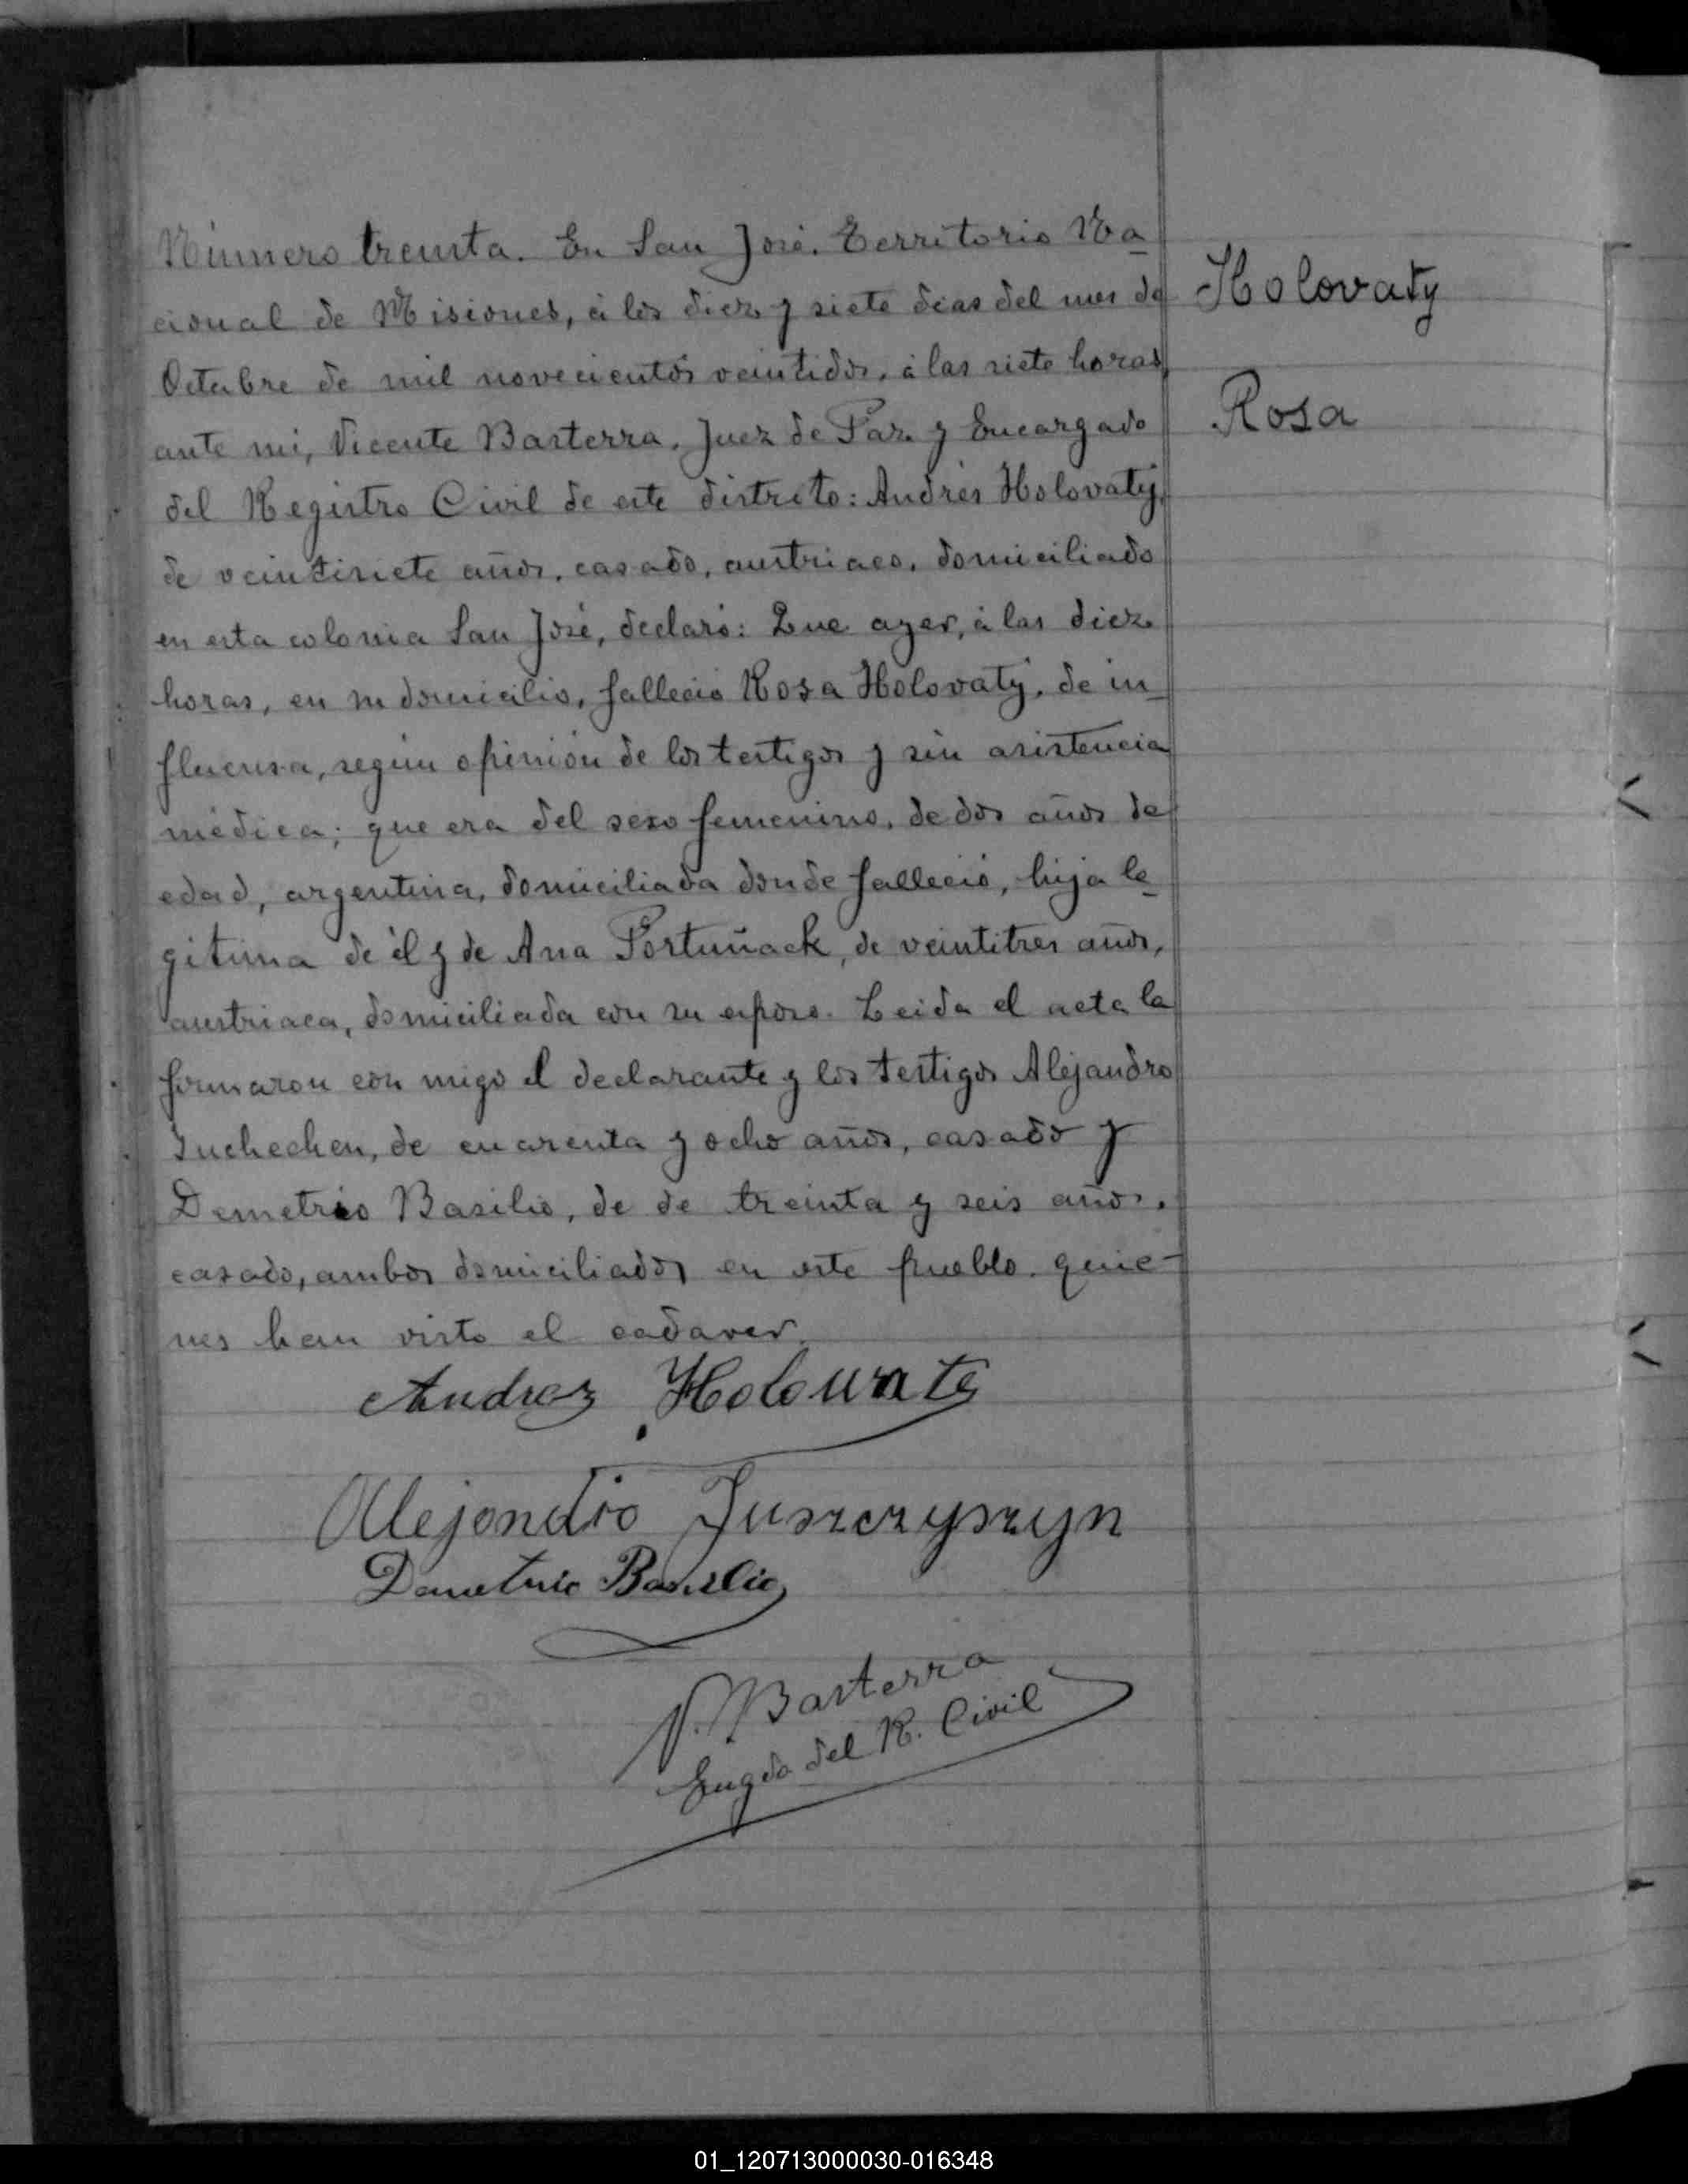 Número treinta. En San José. Territorio Na-
cional de Misiones, á los diez y siete dias del mes de
Octubre de mil novecientos veintidos, á las siete horas,
ante mi, Vicente Basterra, Juez de Paz y Encargado
del Registro Civil de este distrito: Andrés Holovatÿ,
de veintisiete años, casado, austriaco, domiciliado
en esta colonia San José, declaró: Que ayer, á las diez
horas, en su domicilio, falleció Rosa Holovatÿ, de in-
fluensa, según opinión de los testigos y sin asistencia
médica; que era del sexo femenino, de dos años de
edad, argentina, domiciliada donde falleció, hija le-
gitima de él y de Ana Portuñack, de veintitres años,
austriaca, domiciliada con su esposo. Leida el acta la
firmaron con migo el declarante y los testigos Alejandro
Juchechen, de cuarenta y ocho años, casado y
Demetrio Basilio, de de treinta y seis años,
casado, ambos domiciliados en este pueblo. quie-
nes han visto el cadaver.
Holovaty
Rosa
Andrez Holowaty
Alejondro Juszczyszyn
Demetrio Basilio
V. Basterra
Engdo del R. Civil
01_120713000030-016348